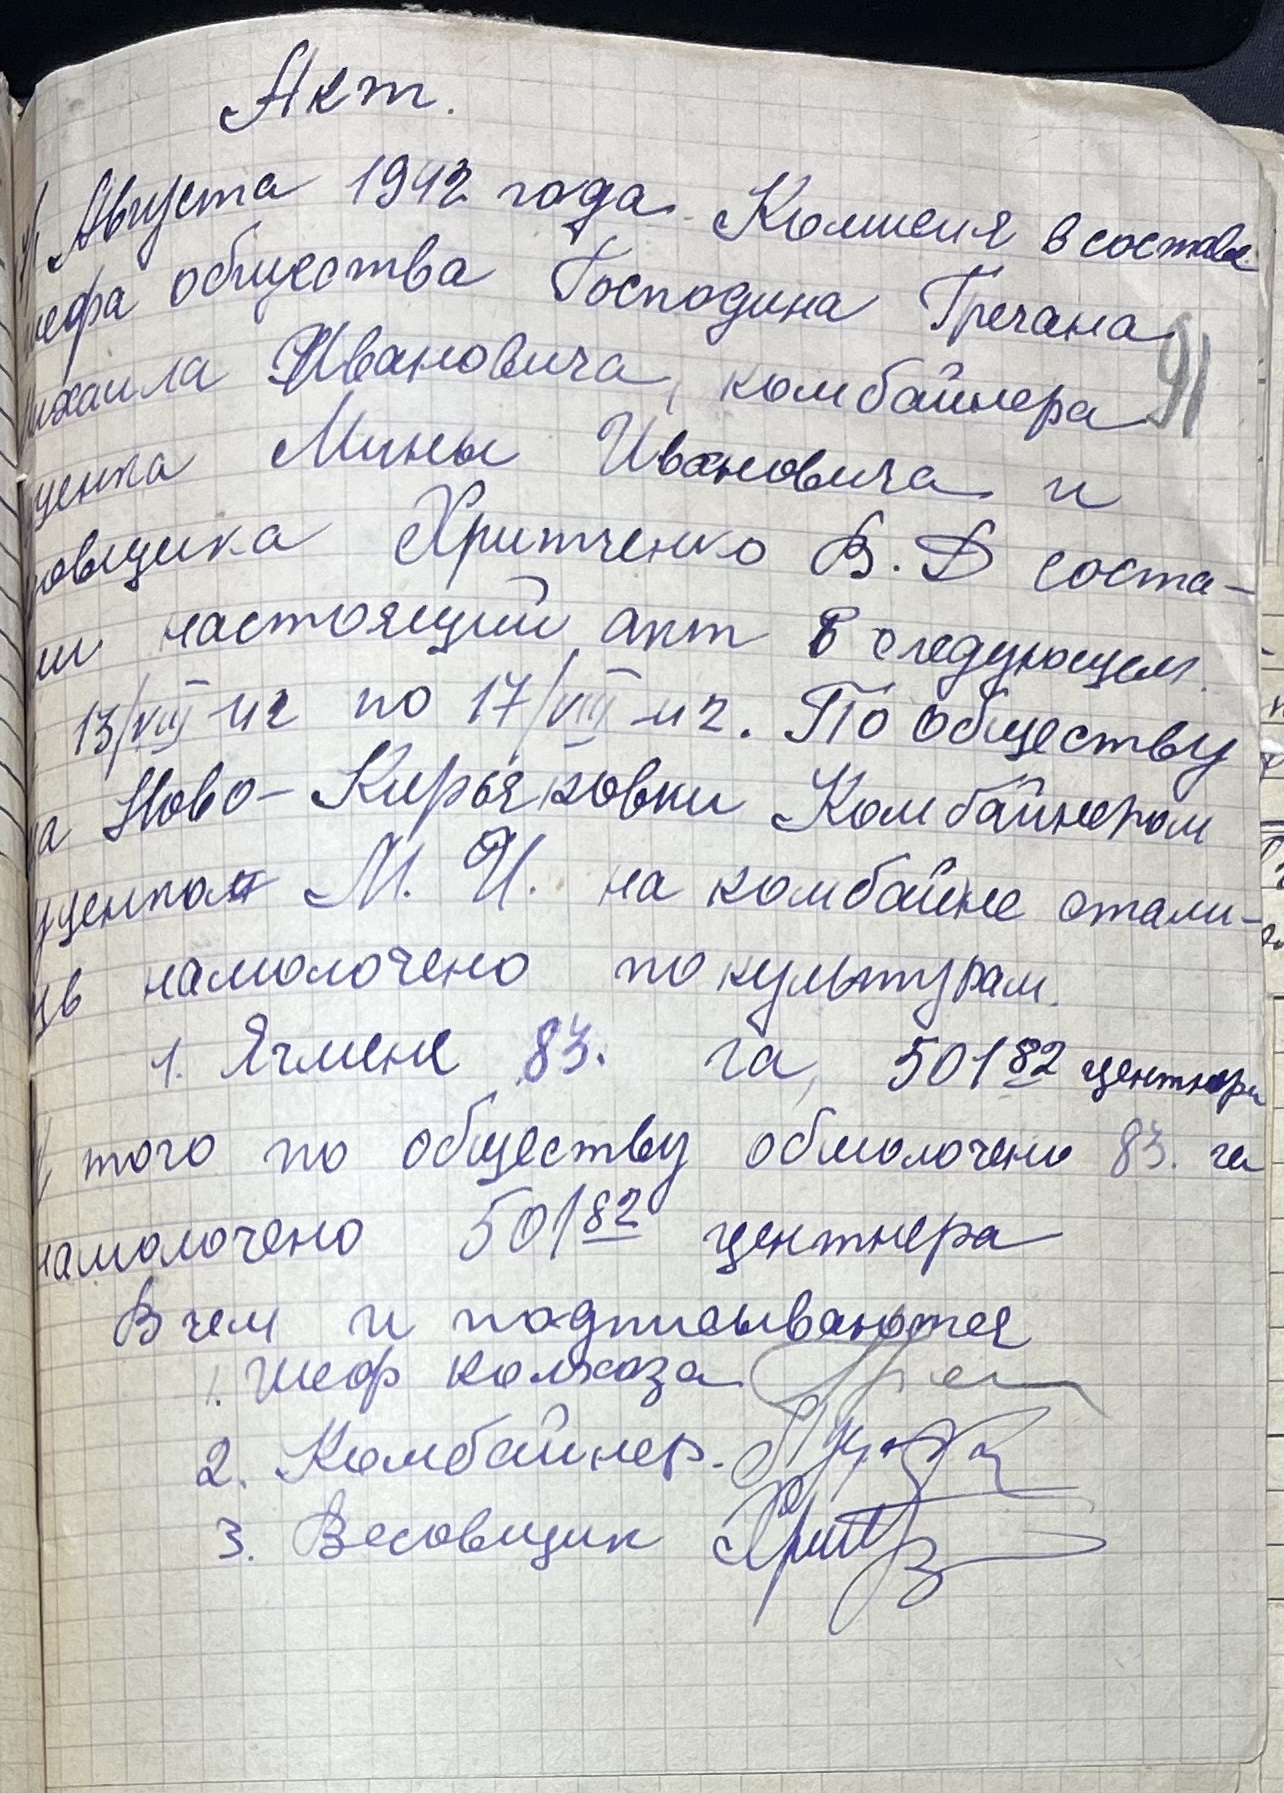 Акт.
Августа 1942 года. Комисия в составе
шефа общества Господина Гречана
Михаила Ивановича, комбайнера
ценка Мины Ивановича и
совщика Хритченко В. Д соста-
ли настоящий акт в следующем.
13/VIII-42 по 17/VIII-42. По обществу
Ново-Кирьяковки Комбайнером
уценком М. И. на комбайне стали-
нец намолочено по культурам.
1. Ячменя 83. га, 501 82 центнера
И того по обществу обмолочено 83. га
намолочено 501 82 центнера
В чем и подписываются
1. Шеф колхоза Греч
2. Комбайнер.
3. Весовщик Хрит
91